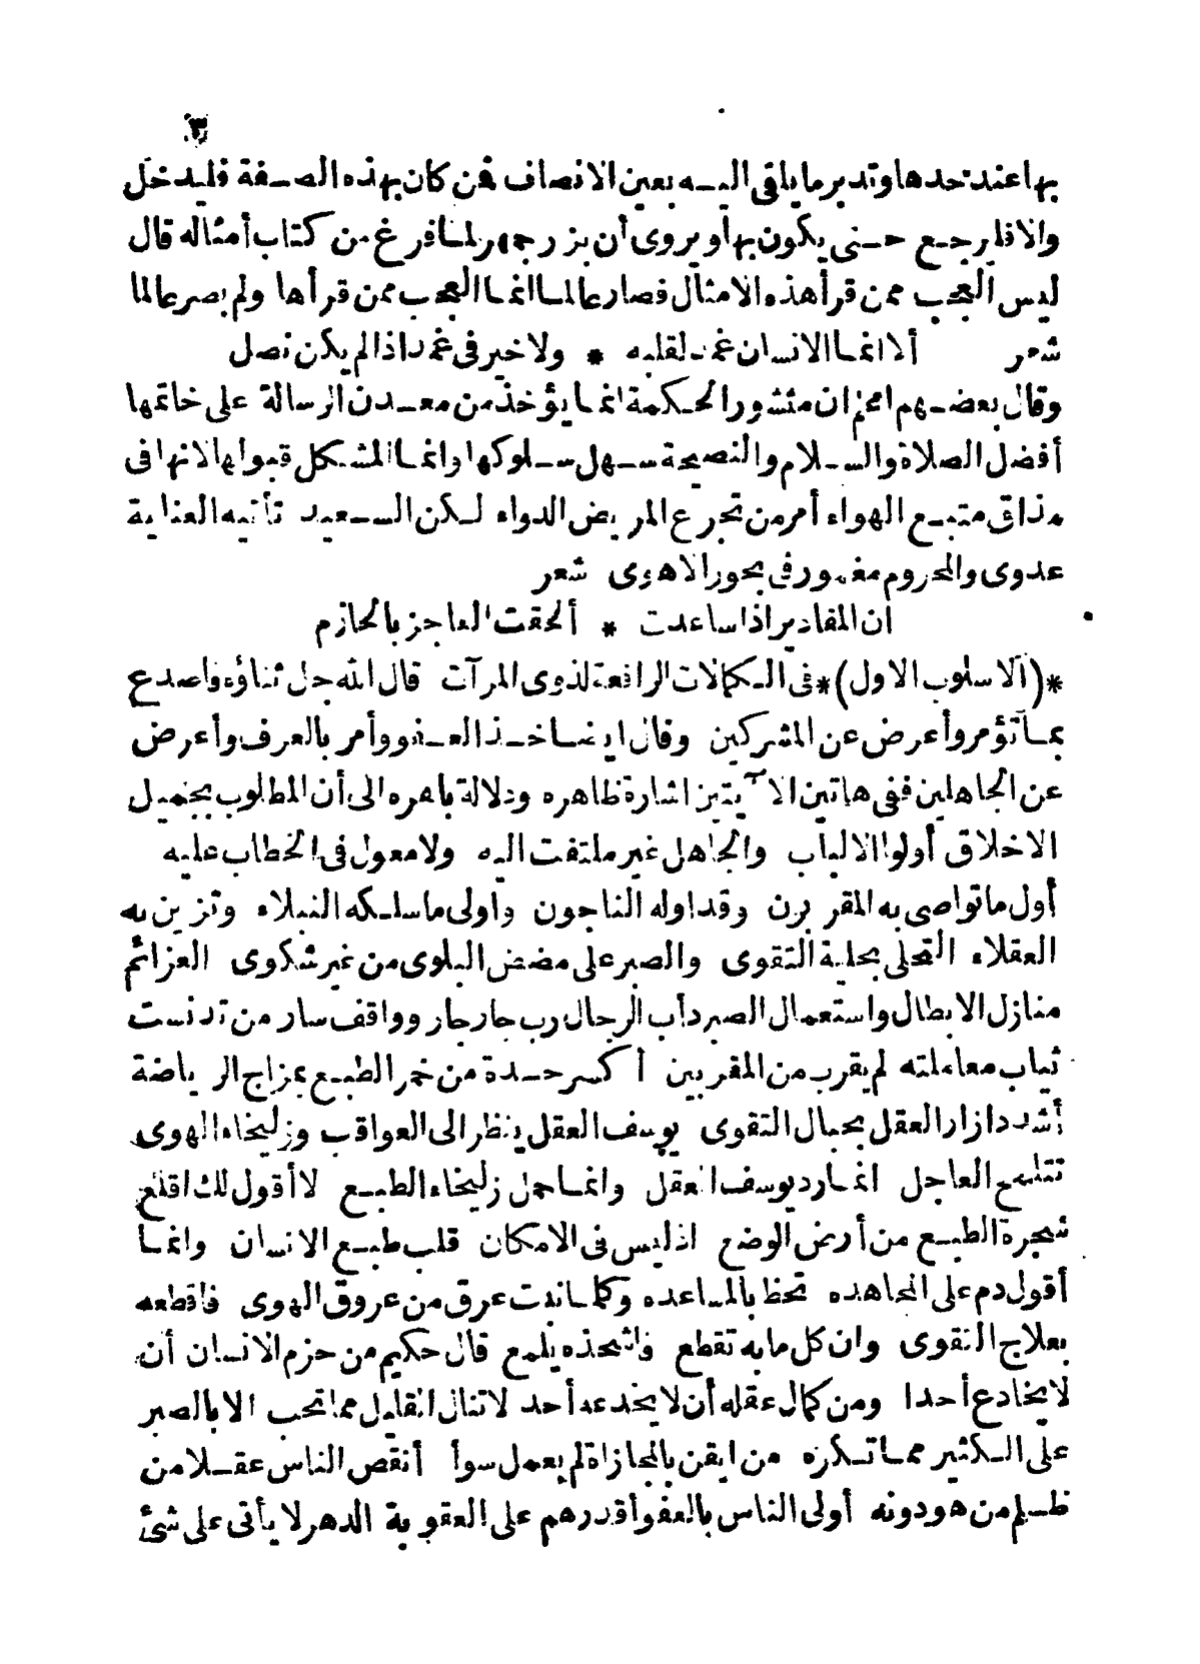 ٣
بها عند حدها وتدبر ما يلقى اليه بعين الانصاف فمن كان بهذه الصفة فليدخل
والا فليرجع حتى يكون بها ويروى أن بزرجمهر لما فرغ من كتاب أمثاله قال
ليس العجب ممن قرأ هذه الامثال فصار عالما انما العجب ممن قرأها ولم يصر عالما
شعر ألا انما الانسان غمد لقلبه * ولا خير فى غمد اذا لم يكن نصل
وقال بعضهم اعلم ان منشور الحكمة انما يؤخذ من معدن الرسالة على خاتمها
أفضل الصلاة والسلام والنصيحة سهل سلوكها وانما المشكل قبولها لانها فى
مذاق متبع الهواء أمر من تجرع المريض الدواء لكن السعيد تأتيه العناية
عدوى والمحروم مغمور فى بحور الاهوى شعر
ان المقادير اذا ساعدت * ألحقت العاجز بالحازم
*(الاسلوب الاول)* فى الكمالات الرافعة لذوى المرآت قال الله جل ثناؤه فاصدع
بما تؤمر وأعرض عن المشركين وقال ايضا خذ العفو وأمر بالعرف وأعرض
عن الجاهلين ففى هاتين الآيتين اشارة ظاهره ودلالة باهره الى أن المطلوب بجميل
الاخلاق أولوا الالباب والجاهل غير ملتفت اليه ولا معول فى الخطاب عليه
أول ما تواصى به المقربون وتداوله الناجون وأولى ما سلكه النبلاء وتزين به
العقلاء التحلى بحلية التقوى والصبر على مضض البلوى من غير شكوى العزائم
منازل الابطال واستعمال الصبر دأب الرجال رب جار جار وواقف سار من تدنست
ثياب معاملته لم يقرب من المقربين أكسر حدة من خمر الطبع بمزاج الرياضة
أشدد ازار العقل بحبال التقوى يوسف العقل ينظر الى العواقب وزليخاء الهوى
تتلمح العاجل انما رد يوسف العقل وانما حمل زليخاء الطبع لا أقول لك اقلع
شجرة الطبع من أرض الوضع اذ ليس فى الامكان قلب طبع الانسان وانما
أقول دم على المجاهده تحظ بالمساعده وكلما نبت عرق من عروق الهوى فاقطعه
بعلاج التقوى وان كل ما به تقطع فاشحذه يلمع قال حكيم من حزم الانسان أن
لا يخادع أحدا ومن كمال عقله أن لا يخدعه أحد لا تنال القليل مما تحب الا بالصبر
على الكثير مما تكره من ايقن بالمجازاة لم يعمل سوأ أنقص الناس عقلا من
ظلم من هو دونه أولى الناس بالعفو أقدرهم على العقوبة الدهر لا يأتى على شئ